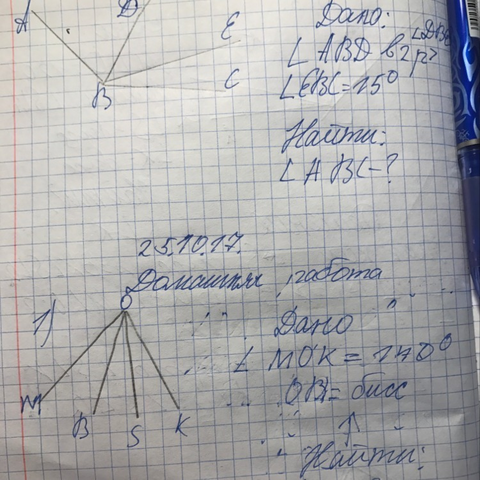 A
D
E
C
B
Дано:
∠ABD в 2 р
∠EBC=15°
Найти:
∠ABC-?
25.10.17.
Домашняя работа
1)
O
M
B
S
K
Дано
∠MOK = 140°
OB = бисс
Найти: